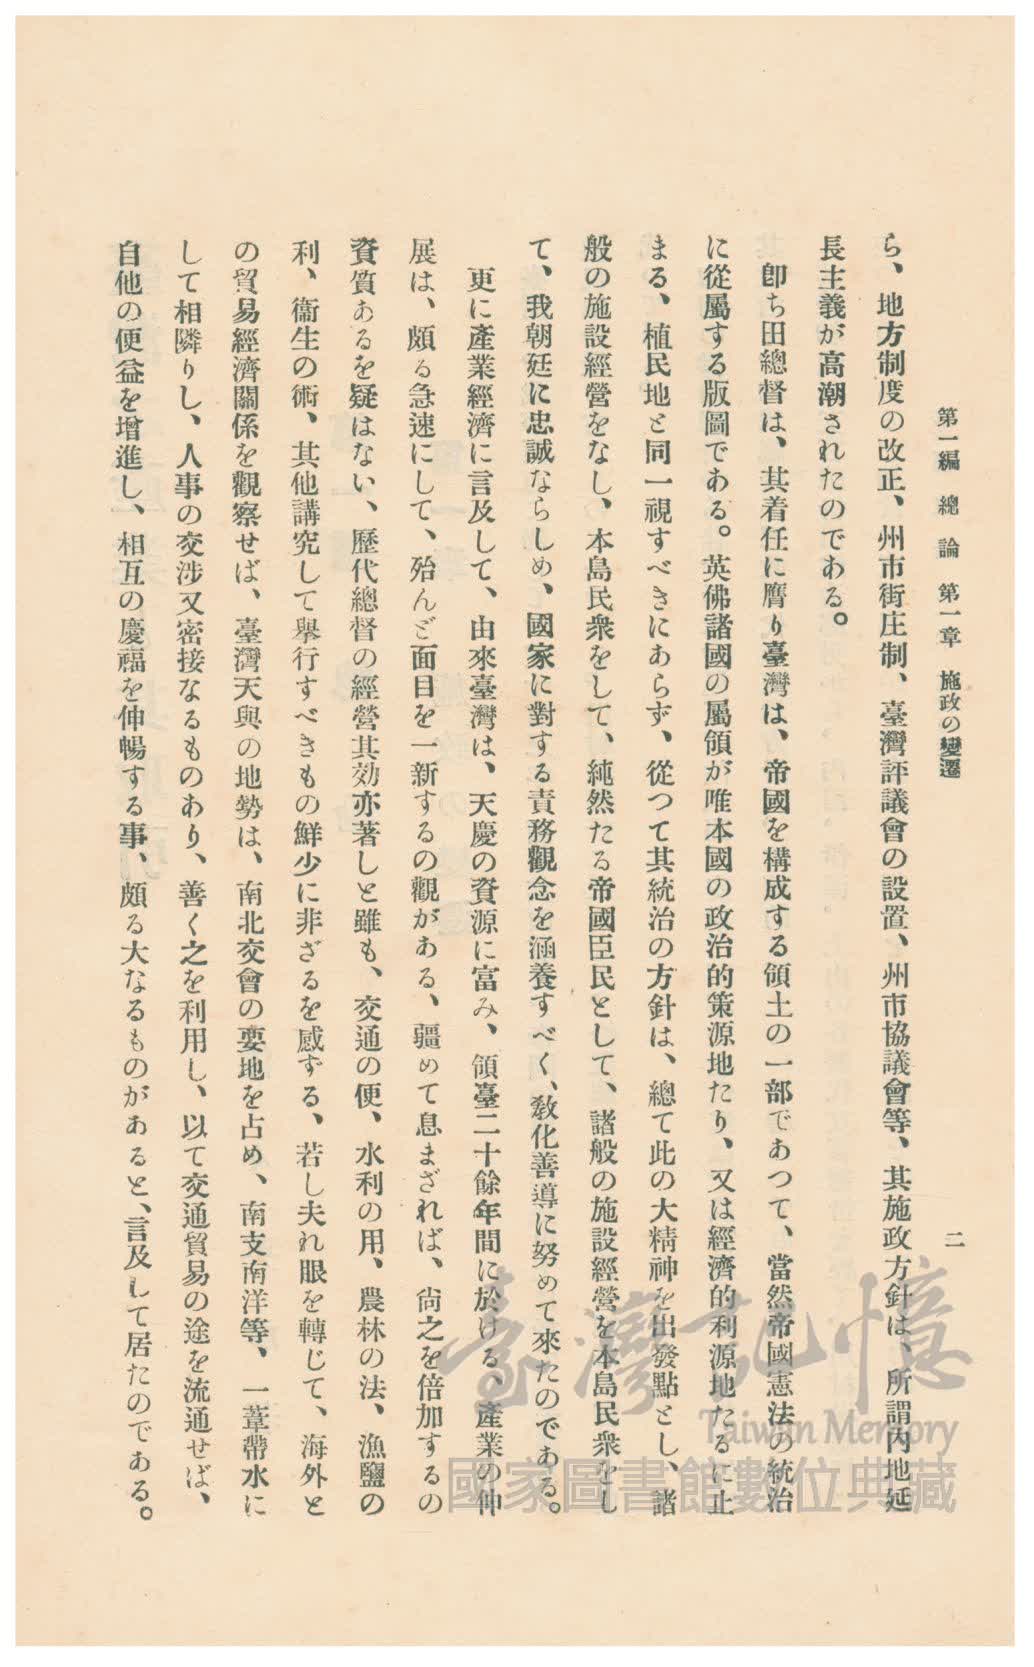 第一編　總論　第一章　施政の變遷
二
ら、地方制度の改正、州市街庄制、臺灣評議會の設置、州市協議會等、其施政方針は、所謂內地延
長主義が高潮されたのである。
卽ち田總督は、其着任に膺り臺灣は、帝國を構成する領土の一部であつて、當然帝國憲法の統治
に從屬する版圖である。英佛諸國の屬領が唯本國の政治的策源地たり、又は經濟的利源地たるに止
まる、植民地と同一視すべきにあらず、從つて其統治の方針は、總て此の大精神を出發點とし、諸
般の施設經營をなし、本島民衆をして、純然たる帝國臣民として、諸般の施設經營を本島民衆をし
て、我朝廷に忠誠ならしめ、國家に對する責務觀念を涵養すべく、敎化善導に努めて來たのである。
更に產業經濟に言及して、由來臺灣は、天慶の資源に富み、領臺二十餘年間に於ける、產業の伸
展は、頗る急速にして、殆んど面目を一新するの觀がある、疆めて息まざれば、尙之を倍加するの
資質あるを疑はない、歷代總督の經營其効亦著しと雖も、交通の便、水利の用、農林の法、漁鹽の
利、衞生の術、其他講究して擧行すべきもの鮮少に非ざるを感ずる、若し夫れ眼を轉じて、海外と
の貿易經濟關係を觀察せば、臺灣天與の地勢は、南北交會の要地を占め、南支南洋等、一葦帶水に
して相隣りし、人事の交涉又密接なるものあり、善く之を利用し、以て交通貿易の途を流通せば、
自他の便益を增進し、相互の慶福を伸暢する事、頗る大なるものがあると、言及して居たのである。
臺灣記憶
Taiwan Memory
國家圖書館數位典藏